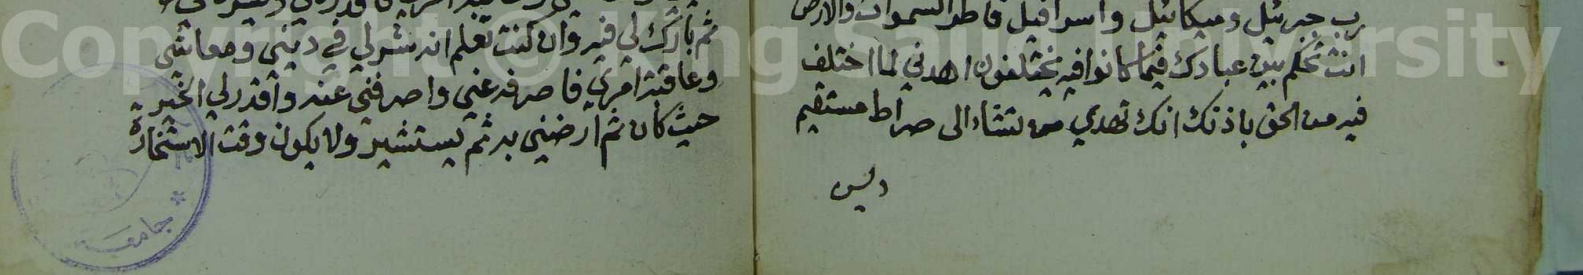 رب جبرئيل وميكائيل واسرافيل فاطر السموات والارض
انت تحكم بين عبادك فيما كانوا فيه يختلفون اهدني لما اختلف
فيه من الحق باذنك انك تهدي من تشاء الى صراط مستقيم
وليس
ثم بارك لي فيه وان كنت تعلم انه شر لي في ديني ومعاشي
وعاقبة امري فاصرفه عني واصرفني عنه واقدر لي الخير
حيث كان ثم ارضني به ثم يستشير ولا يكون وقت الاستخارة
جامعة
Copyright © King Saud University